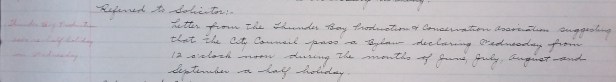 Referred to Solicitor:-
Letter from the Thunder Bay Production & Conservation Association suggesting
that the City Council pass a Bylaw declaring Wednesday from
12 o'clock noon during the months of June, July, August and
September a half holiday.
Thunder Bay Production
a half holiday
Wednesday